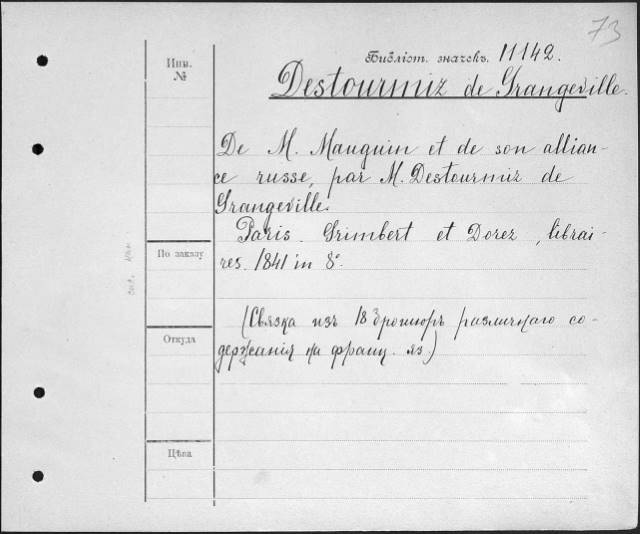 73
Инв. №
Библіот. значекъ. 11142.
Destourmiz de Grangeville.
De M. Mauguin et de son allian-
ce russe, par M. Destourmiz de
Grangeville.
Paris. Grimbert et Dorez, librai-
res. 1841 in 8º
По заказу
(Связка изъ 18 брошюръ различнаго со-
держанія на франц. яз.)
Откуда
Цѣна